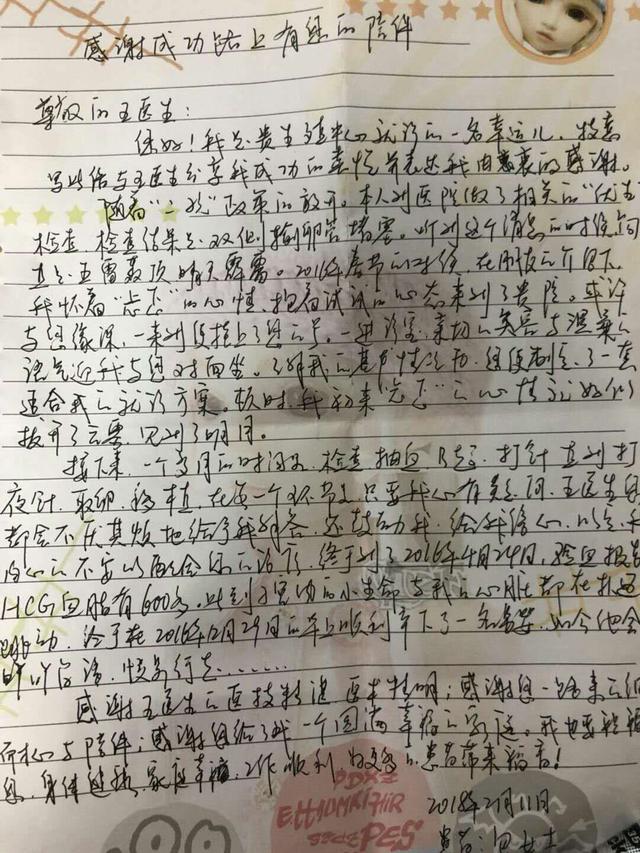 感谢成功路上有您的陪伴
尊敬的王医生：
您好！我是贵生殖中心就诊的一名幸运儿，特意
写此信与王医生分享我成功的喜悦并表达我由衷的感谢。
随着"二孩"政策的放开。本人到医院做了相关的"优生"
检查，检查结果是双侧输卵管堵塞。听到这个消息的时候简
直是五雷轰顶晴天霹雳。2016年春节的时候，在朋友的介绍下，
我怀着"忐忑"的心情，抱着试试的心态来到了贵院。或许
与您缘深，一来到便挂上了您的号。一进诊室，亲切的笑容与温柔的
语气迎我与您对面坐。了解我的基本情况后，您便制定了一套
适合我的就诊方案。顿时，我初来"忐忑"的心情就好似
拨开了云雾，见到了明月。
接下来，一个多月的时间里，检查、抽血、B超、打针直到打
夜针、取卵、移植，在每一个环节上只要我心有疑问，王医生您
都会不厌其烦地给予我解答，还鼓励我，给我信心，以
内心的不安以配合您的治疗，终于到了2016年4月24日，验血报告
HCG血脂有600多，此刻子宫内的小生命与我的心脏都在扑通
跳动，终于在2016年12月29日的早上顺利产下了一名男婴，如今他会
咿吖学语，快易行走……
感谢王医生的医技精湛、医术精明；感谢您一路来的细
心与陪伴；感谢您给了我一个圆满幸福的家庭。我也要祝福
您，身体健康，家庭幸福，工作顺利，为更多的患者带来福音！
2018年2月11日
患者：包女士